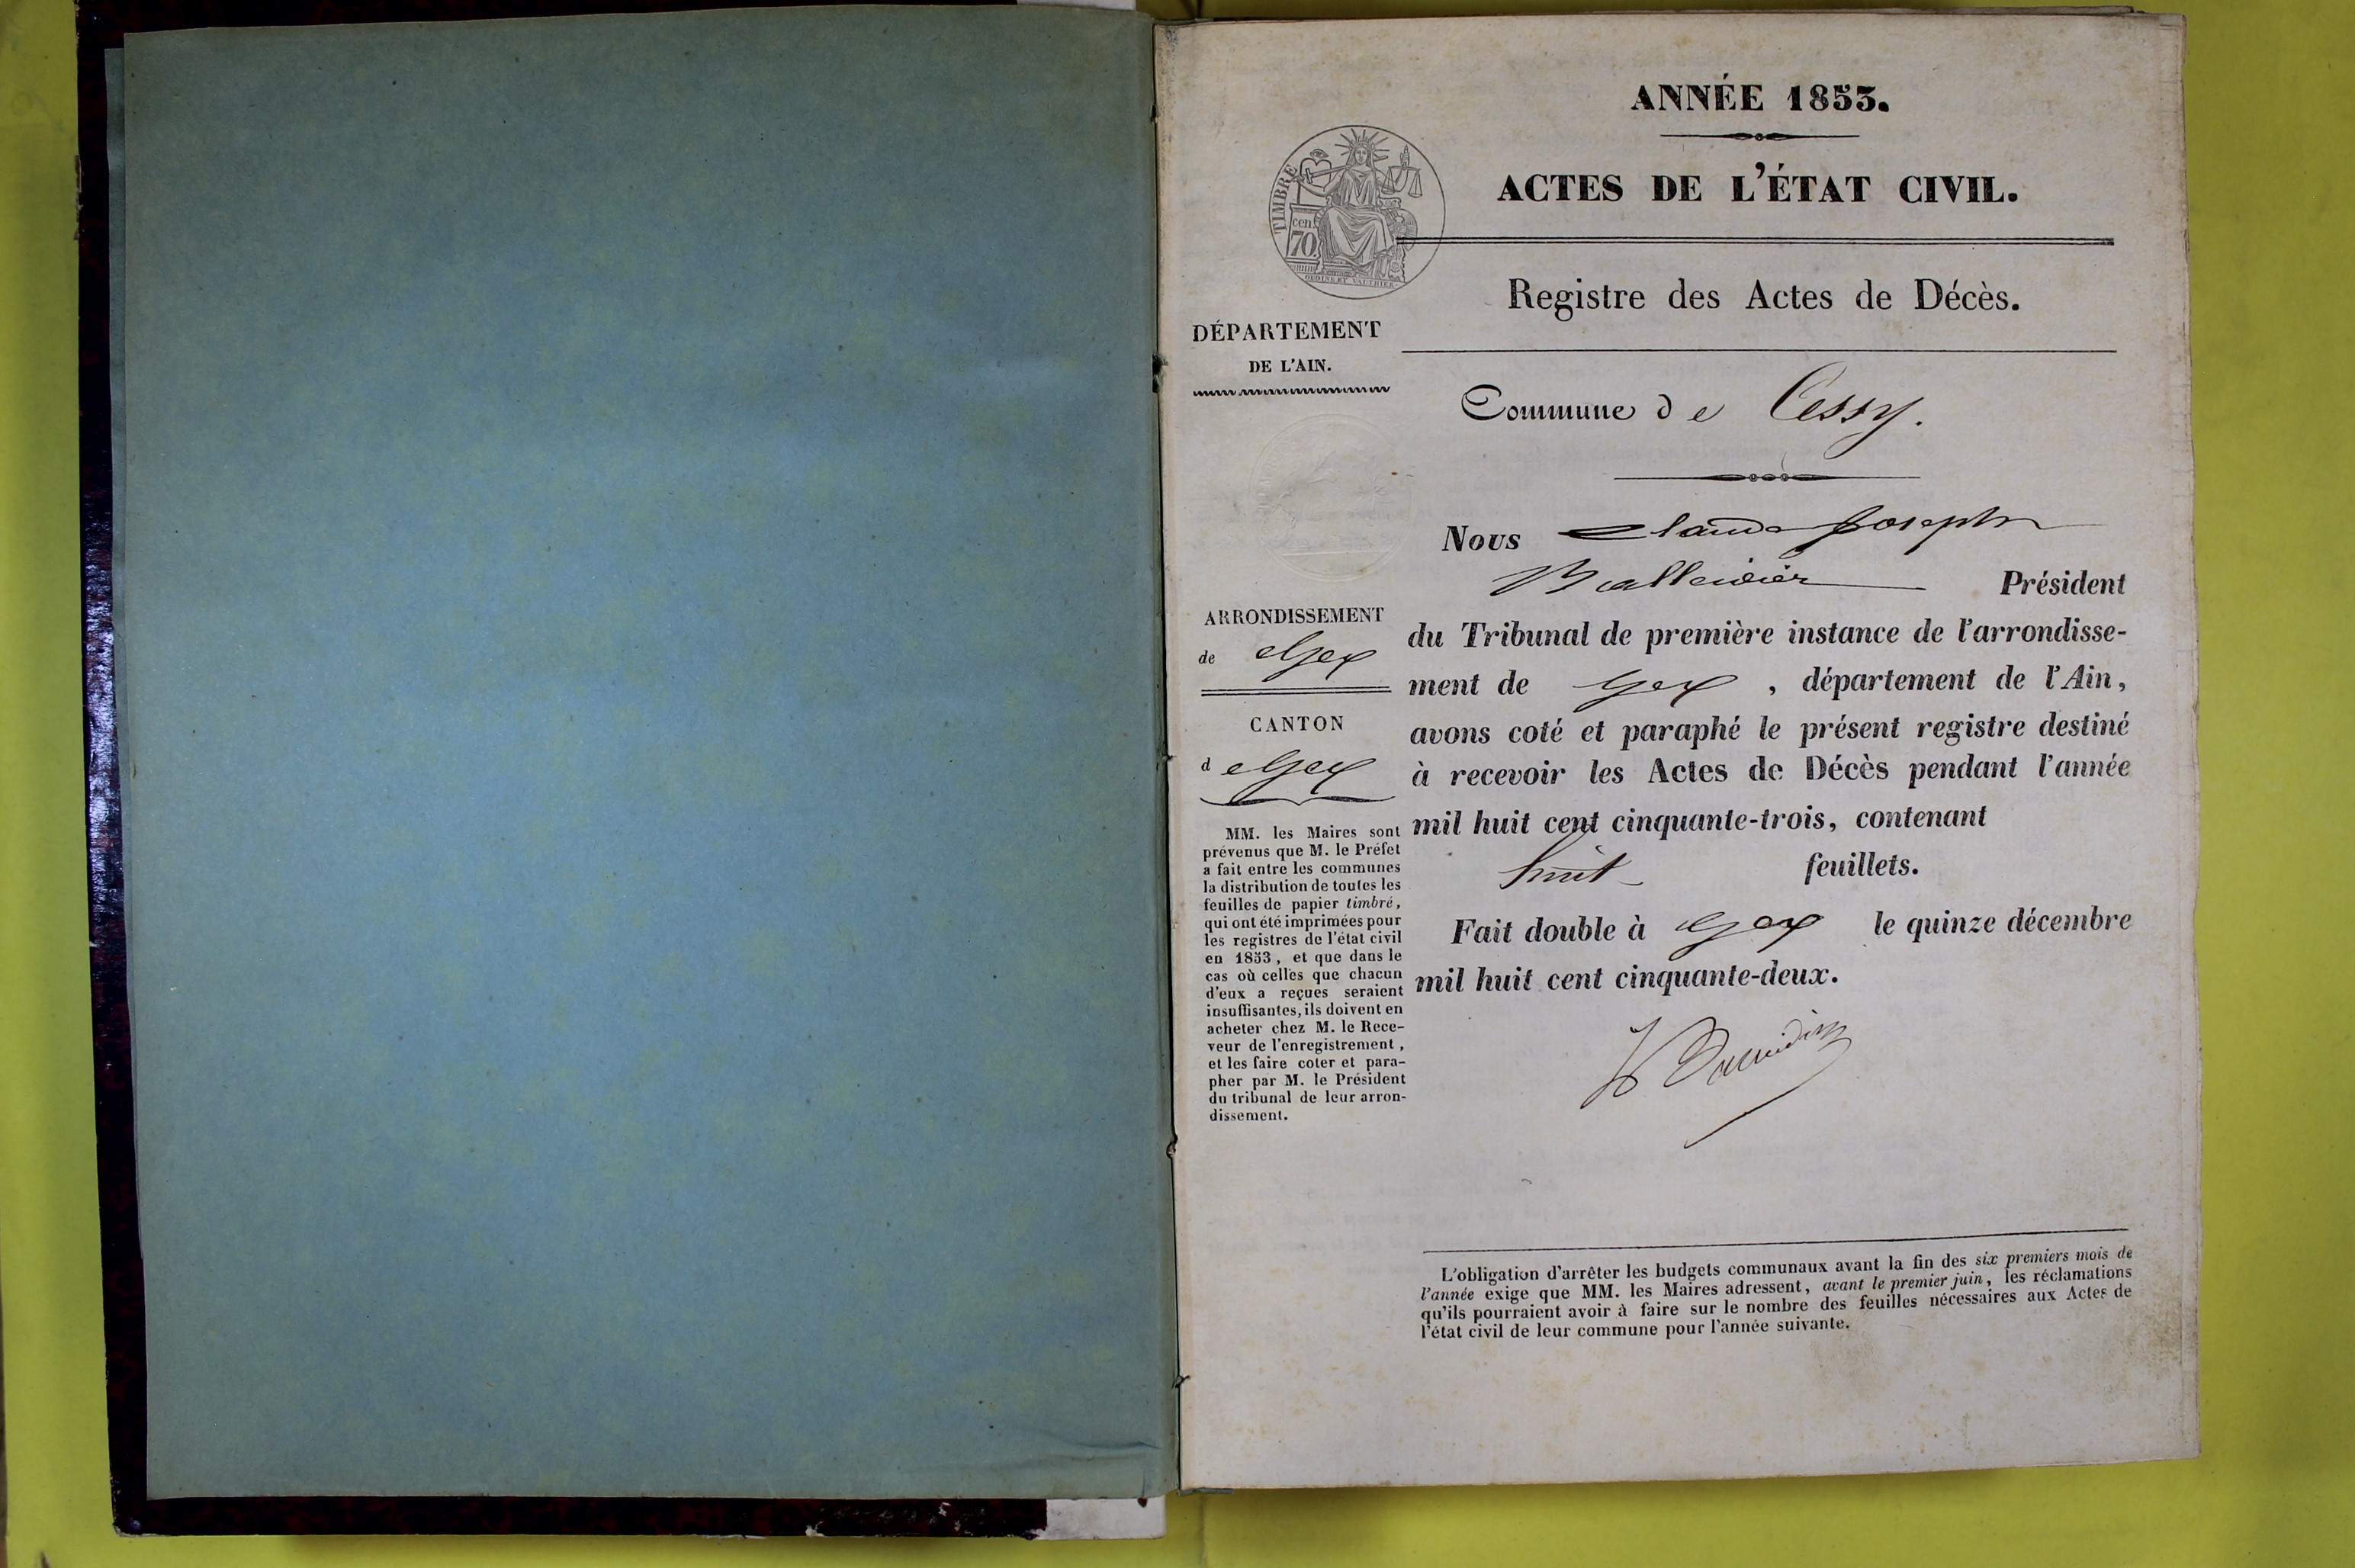 ANNÉE 1853.
ACTES DE L'ÉTAT CIVIL.
TIMBRE
cen.
70.
OUDINÉ ET VAUTHIER
Registre des Actes de Décès.
DÉPARTEMENT
DE L'AIN.
Commune de Cessy.
Nous Claude Joseph
Président
du Tribunal de première instance de l'arrondisse-
ment de Gex , département de l'Ain,
avons coté et paraphé le présent registre destiné
à recevoir les Actes de Décès pendant l'année
mil huit cent cinquante-trois, contenant
huit feuillets.
Fait double à Gex le quinze décembre
mil huit cent cinquante-deux.
ARRONDISSEMENT
de Gex
CANTON
d e Gex
MM. les Maires sont
prévenus que M. le Préfet
a fait entre les communes
la distribution de toutes les
feuilles de papier timbré,
qui ont été imprimées pour
les registres de l'état civil
en 1853, et que dans le
cas où celles que chacun
d'eux a reçues seraient
insuffisantes, ils doivent en
acheter chez M. le Rece-
veur de l'enregistrement,
et les faire coter et para-
pher par M. le Président
du tribunal de leur arron-
dissement.
L'obligation d'arrêter les budgets communaux avant la fin des six premiers mois de
l'année exige que MM. les Maires adressent, avant le premier juin, les réclamations
qu'ils pourraient avoir à faire sur le nombre des feuilles nécessaires aux Actes de
l'état civil de leur commune pour l'année suivante.